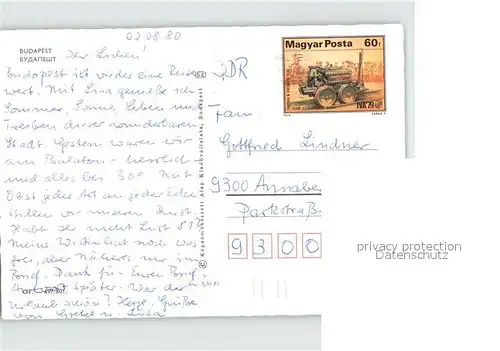 02.08.80
BUDAPEST
БУДАПЕШТ
Ihr Lieben!
Budapest ist wieder eine Reise
wert. Mit Lisa genieße ich
Sommer, Sonne, Leben und
Treiben dieser wunderbaren
Stadt. Gestern waren wir
am Balaton - herrlich
und alles bei 30°. Mit
Obst jeder Art an jeder Ecke
stillen wir unseren Durst.
Habt Ihr nicht Lust 81?
Meine Wirtin hat noch was
frei, aber Näheres nur im
Brief. Dank für Euren Brief.
später. War der
Urlaub schön? Herzl. Grüße
von Gretel u. Lisa
© Képzőművészeti Alap Kiadóvállalata, Budapest
DDR
Magyar Posta 60f
IVA 79
Fam
Gottfried Lindner
9300 Annaber
Parkstraß
9300
privacy protection
Datenschutz